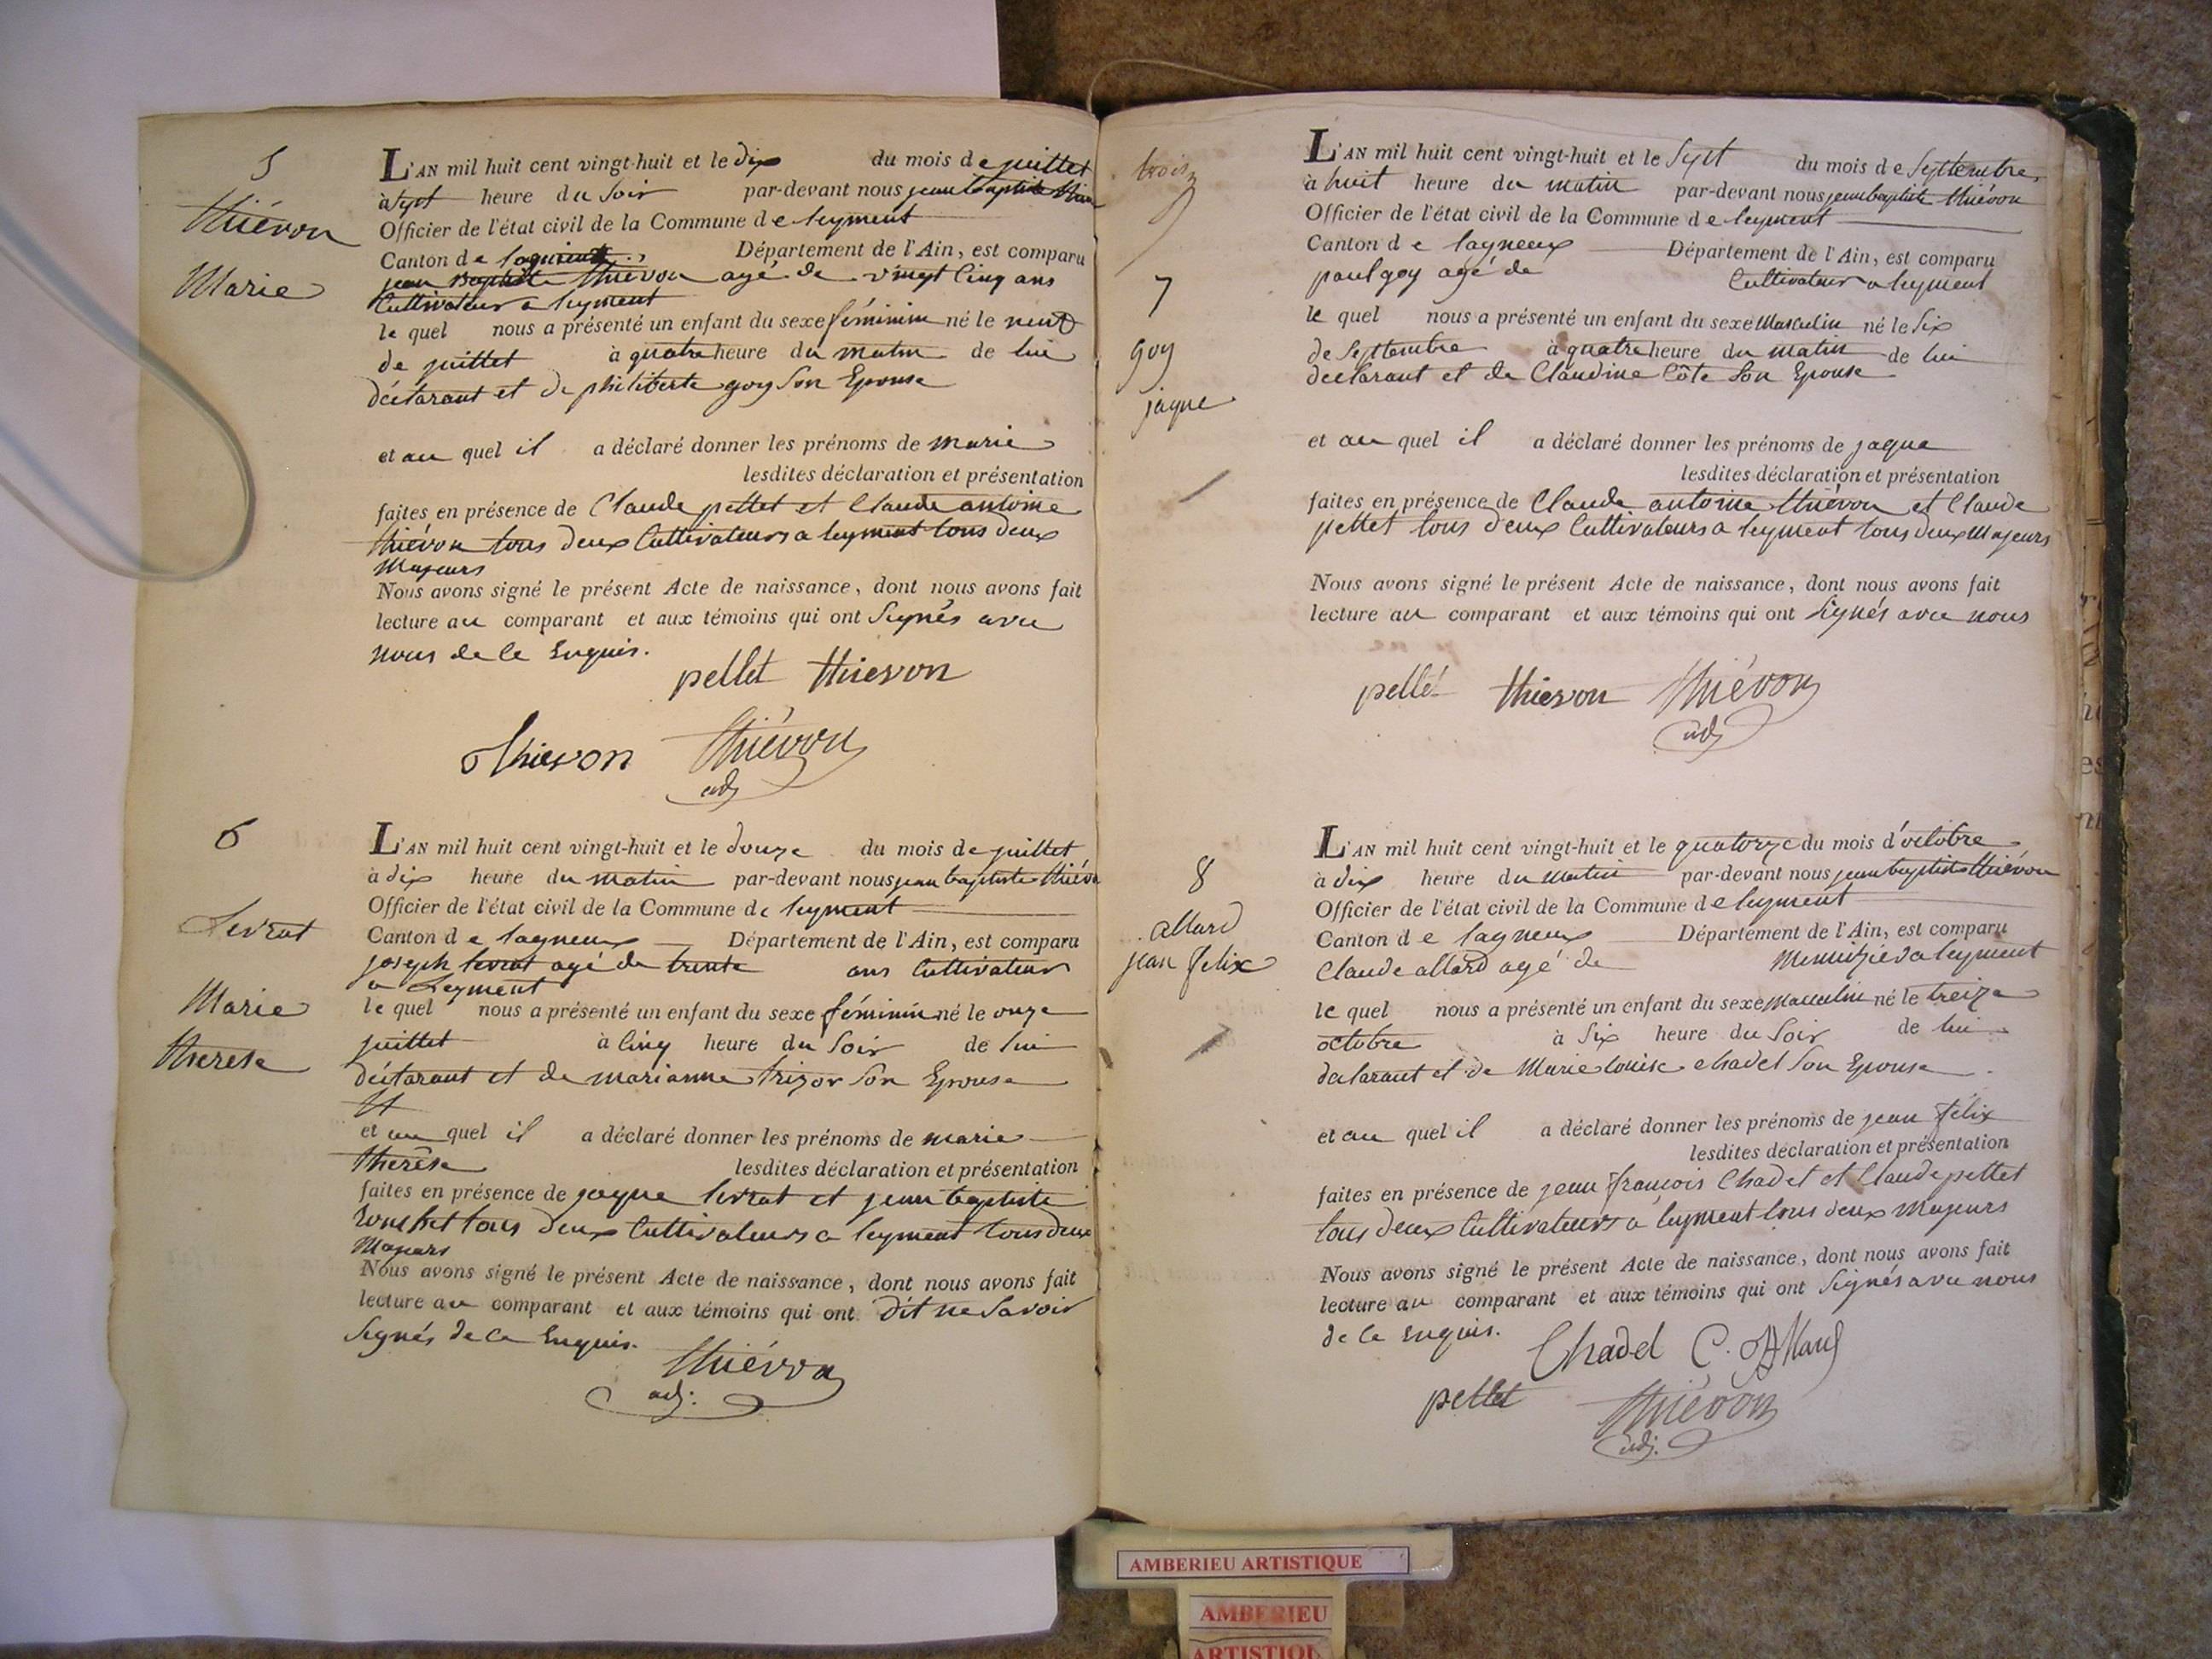 5
Thiévon
Marie
L'AN mil huit cent vingt-huit et le dix du mois de juillet
à sept heure du soir par-devant nous jean baptiste
Officier de l'état civil de la Commune de leyment
Canton de Département de l'Ain, est comparu
jean Baptiste thiévon agé de vingt cinq ans
Cultivateur a leyment
le quel nous a présenté un enfant du sexe féminin né le neuf
de juillet à quatre heure du matin de lui
déclarant et de philiberte goy son Epouse
et au quel il a déclaré donner les prénoms de marie
lesdites déclaration et présentation
faites en présence de Claude pellet et Claude antoine
thiévon tous deux Cultivateurs a leyment tous deux
Majeurs
Nous avons signé le présent Acte de naissance, dont nous avons fait
lecture au comparant et aux témoins qui ont signés avec
nous de ce Enquis.
pellet thievon
thievon thiévon
adj
6
Levrat
Marie
therese
L'AN mil huit cent vingt-huit et le douze du mois de juillet
à dix heure du matin par-devant nous jean baptiste thiévon
Officier de l'état civil de la Commune de leyment
Canton de lagneux Département de l'Ain, est comparu
joseph levrat agé de trente ans Cultivateur
a Leyment
le quel nous a présenté un enfant du sexe féminin né le onze
juillet à cinq heure du soir de lui
déclarant et de marianne son Epouse
et au quel il a déclaré donner les prénoms de marie
thérèse lesdites déclaration et présentation
faites en présence de jaque levrat et jean baptiste
tous deux Cultivateurs a leyment tous deux
Majeurs
Nous avons signé le présent Acte de naissance, dont nous avons fait
lecture au comparant et aux témoins qui ont dit ne savoir
signés de ce Enquis.
thiévon
adj:
trois
7
goy
jaque
L'AN mil huit cent vingt-huit et le sept du mois de septembre
à huit heure du matin par-devant nous jean baptiste thiévon
Officier de l'état civil de la Commune de leyment
Canton de lagneux Département de l'Ain, est comparu
paul goy agé de Cultivateur a leyment
le quel nous a présenté un enfant du sexe Masculin né le six
de septembre à quatre heure du matin de lui
déclarant et de Claudine Côte son Epouse
et au quel il a déclaré donner les prénoms de jaque
lesdites déclaration et présentation
faites en présence de Claude antoine thiévon et Claude
pellet tous deux Cultivateurs a leyment tous deux Majeurs
Nous avons signé le présent Acte de naissance, dont nous avons fait
lecture au comparant et aux témoins qui ont signés avec nous
pellet thievon thiévon
adj
8
allard
jean felix
L'AN mil huit cent vingt-huit et le quatorze du mois d'octobre
à dix heure du matin par-devant nous jean baptiste thiévon
Officier de l'état civil de la Commune de leyment
Canton de lagneux Département de l'Ain, est comparu
Claude allard agé de a leyment
le quel nous a présenté un enfant du sexe masculin né le treize
octobre à six heure du soir de lui
déclarant et de Marie louise chadel son Epouse
et au quel il a déclaré donner les prénoms de jean félix
lesdites déclaration et présentation
faites en présence de jean françois Chadel et Claude pellet
tous deux Cultivateurs a leyment tous deux Majeurs
Nous avons signé le présent Acte de naissance, dont nous avons fait
lecture au comparant et aux témoins qui ont signés avec nous
de ce Enquis.
Chadel C. Allard
pellet thiévon
adj.
AMBERIEU ARTISTIQUE
AMBERIEU
ARTISTIQUE